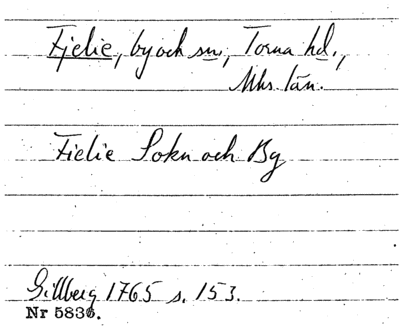 Fjelie, by och sn, Torna hd.,
Mhs. län.
Fielie Sokn och By
Gillberg 1765 s. 153.
Nr 5836.